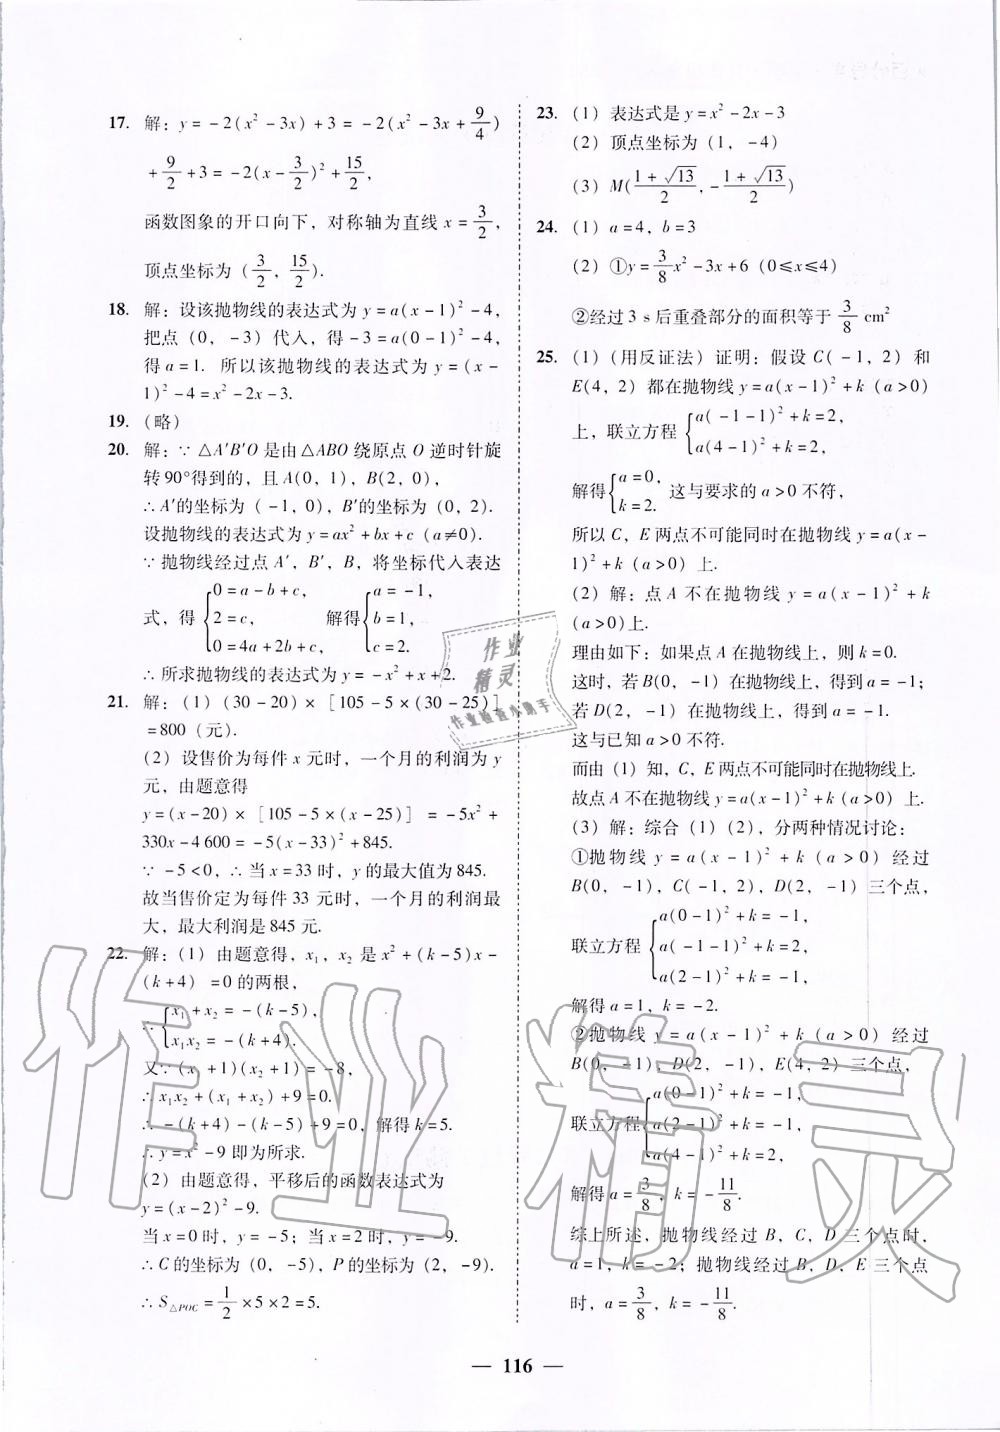 17. 解：y=-2(x²-3x)+3=-2(x²-3x+9/4)
+9/2+3=-2(x-3/2)²+15/2,
函数图象的开口向下，对称轴为直线x=3/2，
顶点坐标为(3/2, 15/2).
18. 解：设该抛物线的表达式为y=a(x-1)²-4，
把点(0，-3)代入，得-3=a(0-1)²-4，
得a=1. 所以该抛物线的表达式为y=(x-
1)²-4=x²-2x-3.
19. (略)
20. 解：∵△A′B′O是由△ABO绕原点O逆时针旋
转90°得到的，且A(0，1)，B(2，0)，
∴A′的坐标为(-1，0)，B′的坐标为(0，2).
设抛物线的表达式为y=ax²+bx+c(a≠0).
∵抛物线经过点A′，B′，B，将坐标代入表达
式，得{0=a-b+c, 2=c, 0=4a+2b+c, 解得{a=-1, b=1, c=2.
∴所求抛物线的表达式为y=-x²+x+2.
21. 解：(1)(30-20)×[105-5×(30-25)]
=800(元).
(2)设售价为每件x元时，一个月的利润为y
元，由题意得
y=(x-20)×[105-5×(x-25)]=-5x²+
330x-4 600=-5(x-33)²+845.
∵-5<0，∴当x=33时，y的最大值为845.
故当售价定为每件33元时，一个月的利润最
大，最大利润是845元.
22. 解：(1)由题意得，x₁，x₂是x²+(k-5)x-
(k+4)=0的两根，
∴{x₁+x₂=-(k-5), x₁x₂=-(k+4).
又∵(x₁+1)(x₂+1)=-8，
∴x₁x₂+(x₁+x₂)+9=0.
∴-(k+4)-(k-5)+9=0，解得k=5.
∴y=x²-9即为所求.
(2)由题意得，平移后的函数表达式为
y=(x-2)²-9.
当x=0时，y=-5；当x=2时，y=-9.
∴C的坐标为(0，-5)，P的坐标为(2，-9).
∴S△POC=1/2×5×2=5.
23. (1)表达式是y=x²-2x-3
(2)顶点坐标为(1，-4)
(3)M((1+√13)/2, -(1+√13)/2)
24. (1)a=4，b=3
(2)①y=3/8x²-3x+6(0≤x≤4)
②经过3 s后重叠部分的面积等于3/8 cm²
25. (1)(用反证法)证明：假设C(-1，2)和
E(4，2)都在抛物线y=a(x-1)²+k(a>0)
上，联立方程{a(-1-1)²+k=2, a(4-1)²+k=2,
解得{a=0, k=2. 这与要求的a>0不符，
所以C，E两点不可能同时在抛物线y=a(x-
1)²+k(a>0)上.
(2)解：点A不在抛物线y=a(x-1)²+k
(a>0)上.
理由如下：如果点A在抛物线上，则k=0.
这时，若B(0，-1)在抛物线上，得到a=-1；
若D(2，-1)在抛物线上，得到a=-1.
这与已知a>0不符.
而由(1)知，C，E两点不可能同时在抛物线上.
故点A不在抛物线y=a(x-1)²+k(a>0)上.
(3)解：综合(1)(2)，分两种情况讨论：
①抛物线y=a(x-1)²+k(a>0)经过
B(0，-1)，C(-1，2)，D(2，-1)三个点，
联立方程{a(0-1)²+k=-1, a(-1-1)²+k=2, a(2-1)²+k=-1,
解得a=1，k=-2.
②抛物线y=a(x-1)²+k(a>0)经过
B(0，-1)，D(2，-1)，E(4，2)三个点，
联立方程{a(0-1)²+k=-1, a(2-1)²+k=-1, a(4-1)²+k=2,
解得a=3/8，k=-11/8.
综上所述，抛物线经过B，C，D三个点时，
a=1，k=-2；抛物线经过B，D，E三个点
时，a=3/8，k=-11/8.
— 116 —
作业
精灵
作业检查小助手
作业精灵